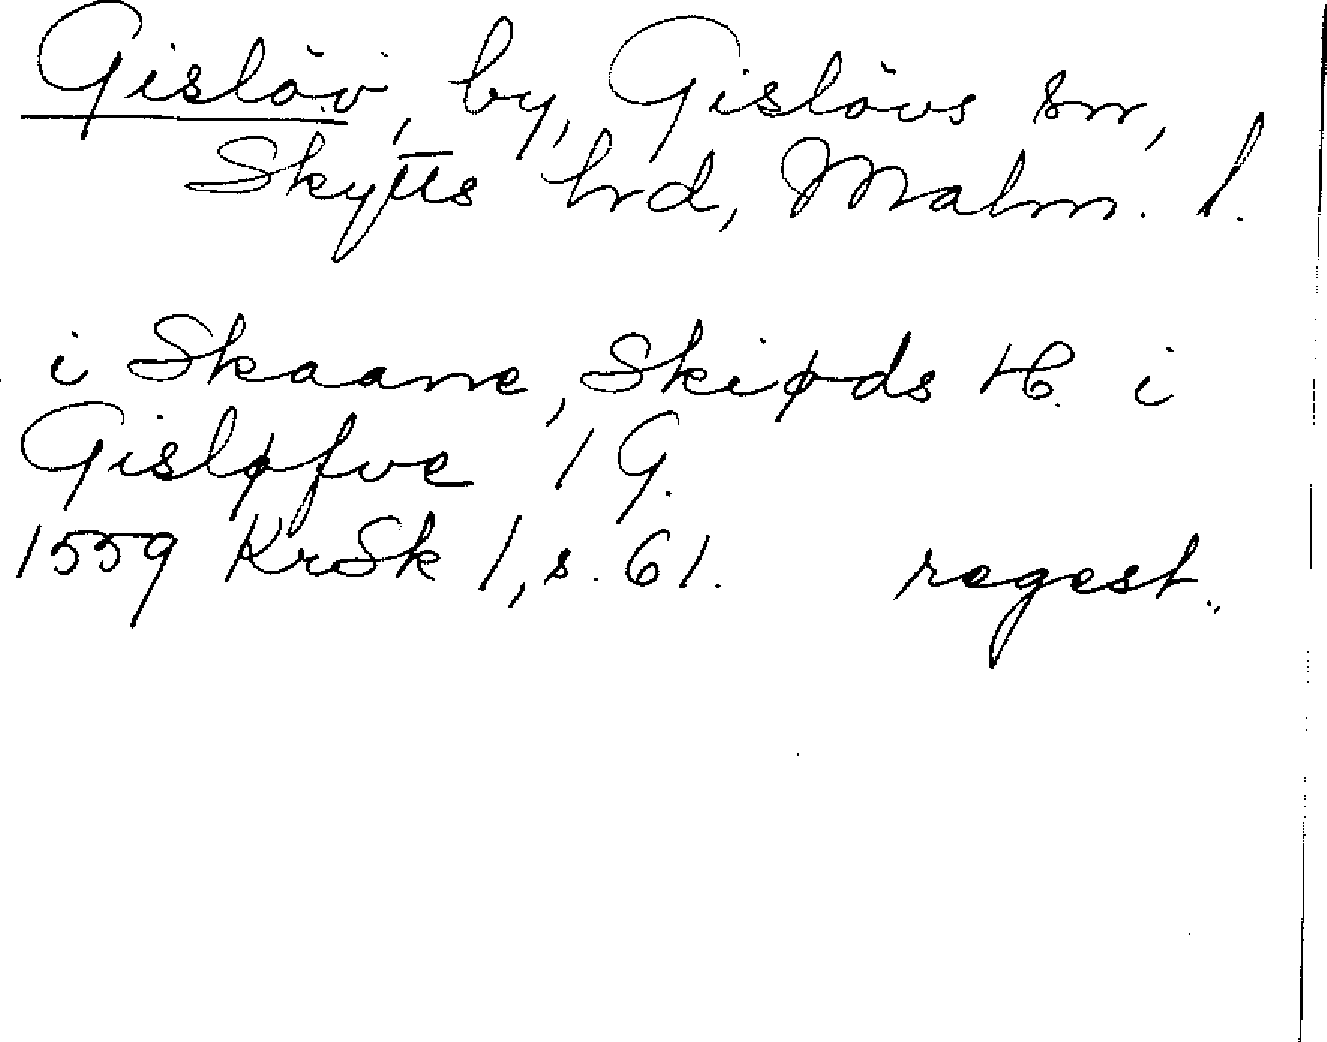 Gislöv, by, Gislövs sn,
Skytts hrd, Malm. l.
i Skaane, Skiøds H. i
Gisløfve 1 G.
1559 KrSk 1, s. 61. regest.